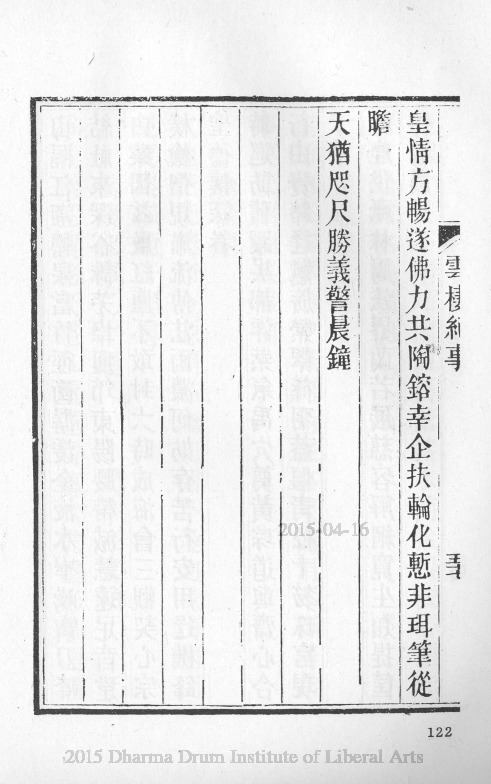 雲棲紀事
皇情方暢遂佛力共陶鎔幸企扶輪化慙非珥筆從
瞻
天猶咫尺勝義警晨鐘
2015-04-16
122
2015 Dharma Drum Institute of Liberal Arts